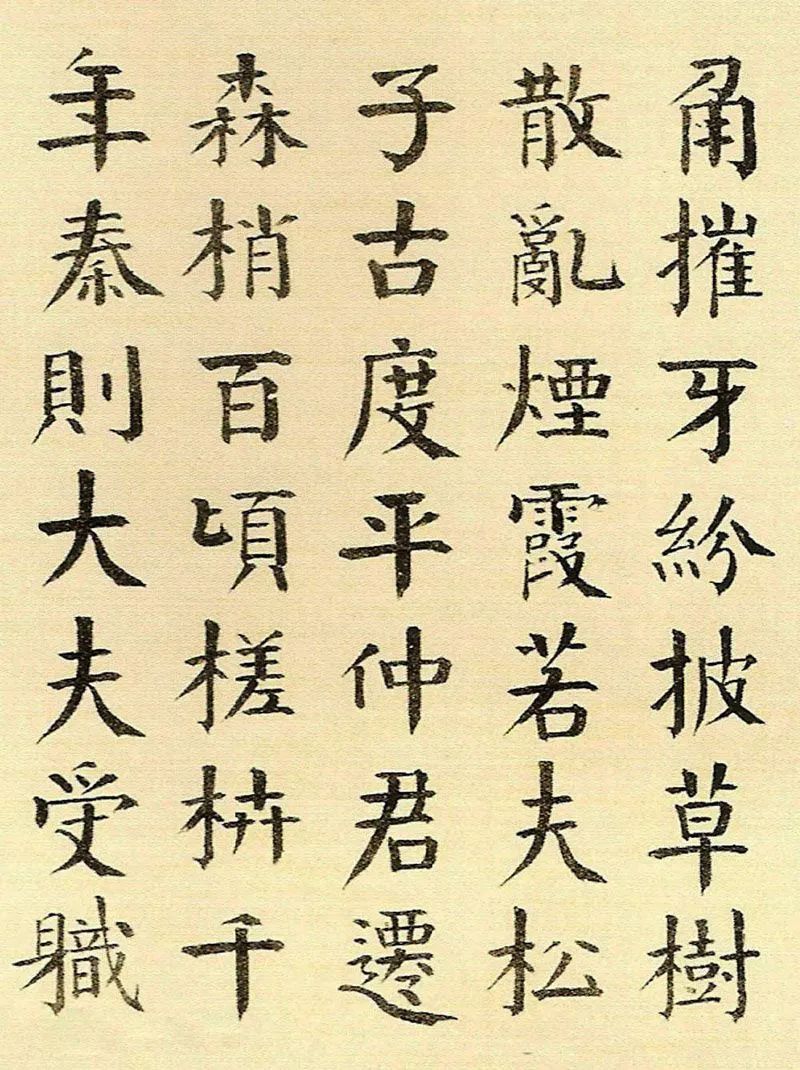 角摧牙紛披草樹
散亂煙霞若夫松
子古度平仲君遷
森梢百頃槎枿千
年秦則大夫受軄